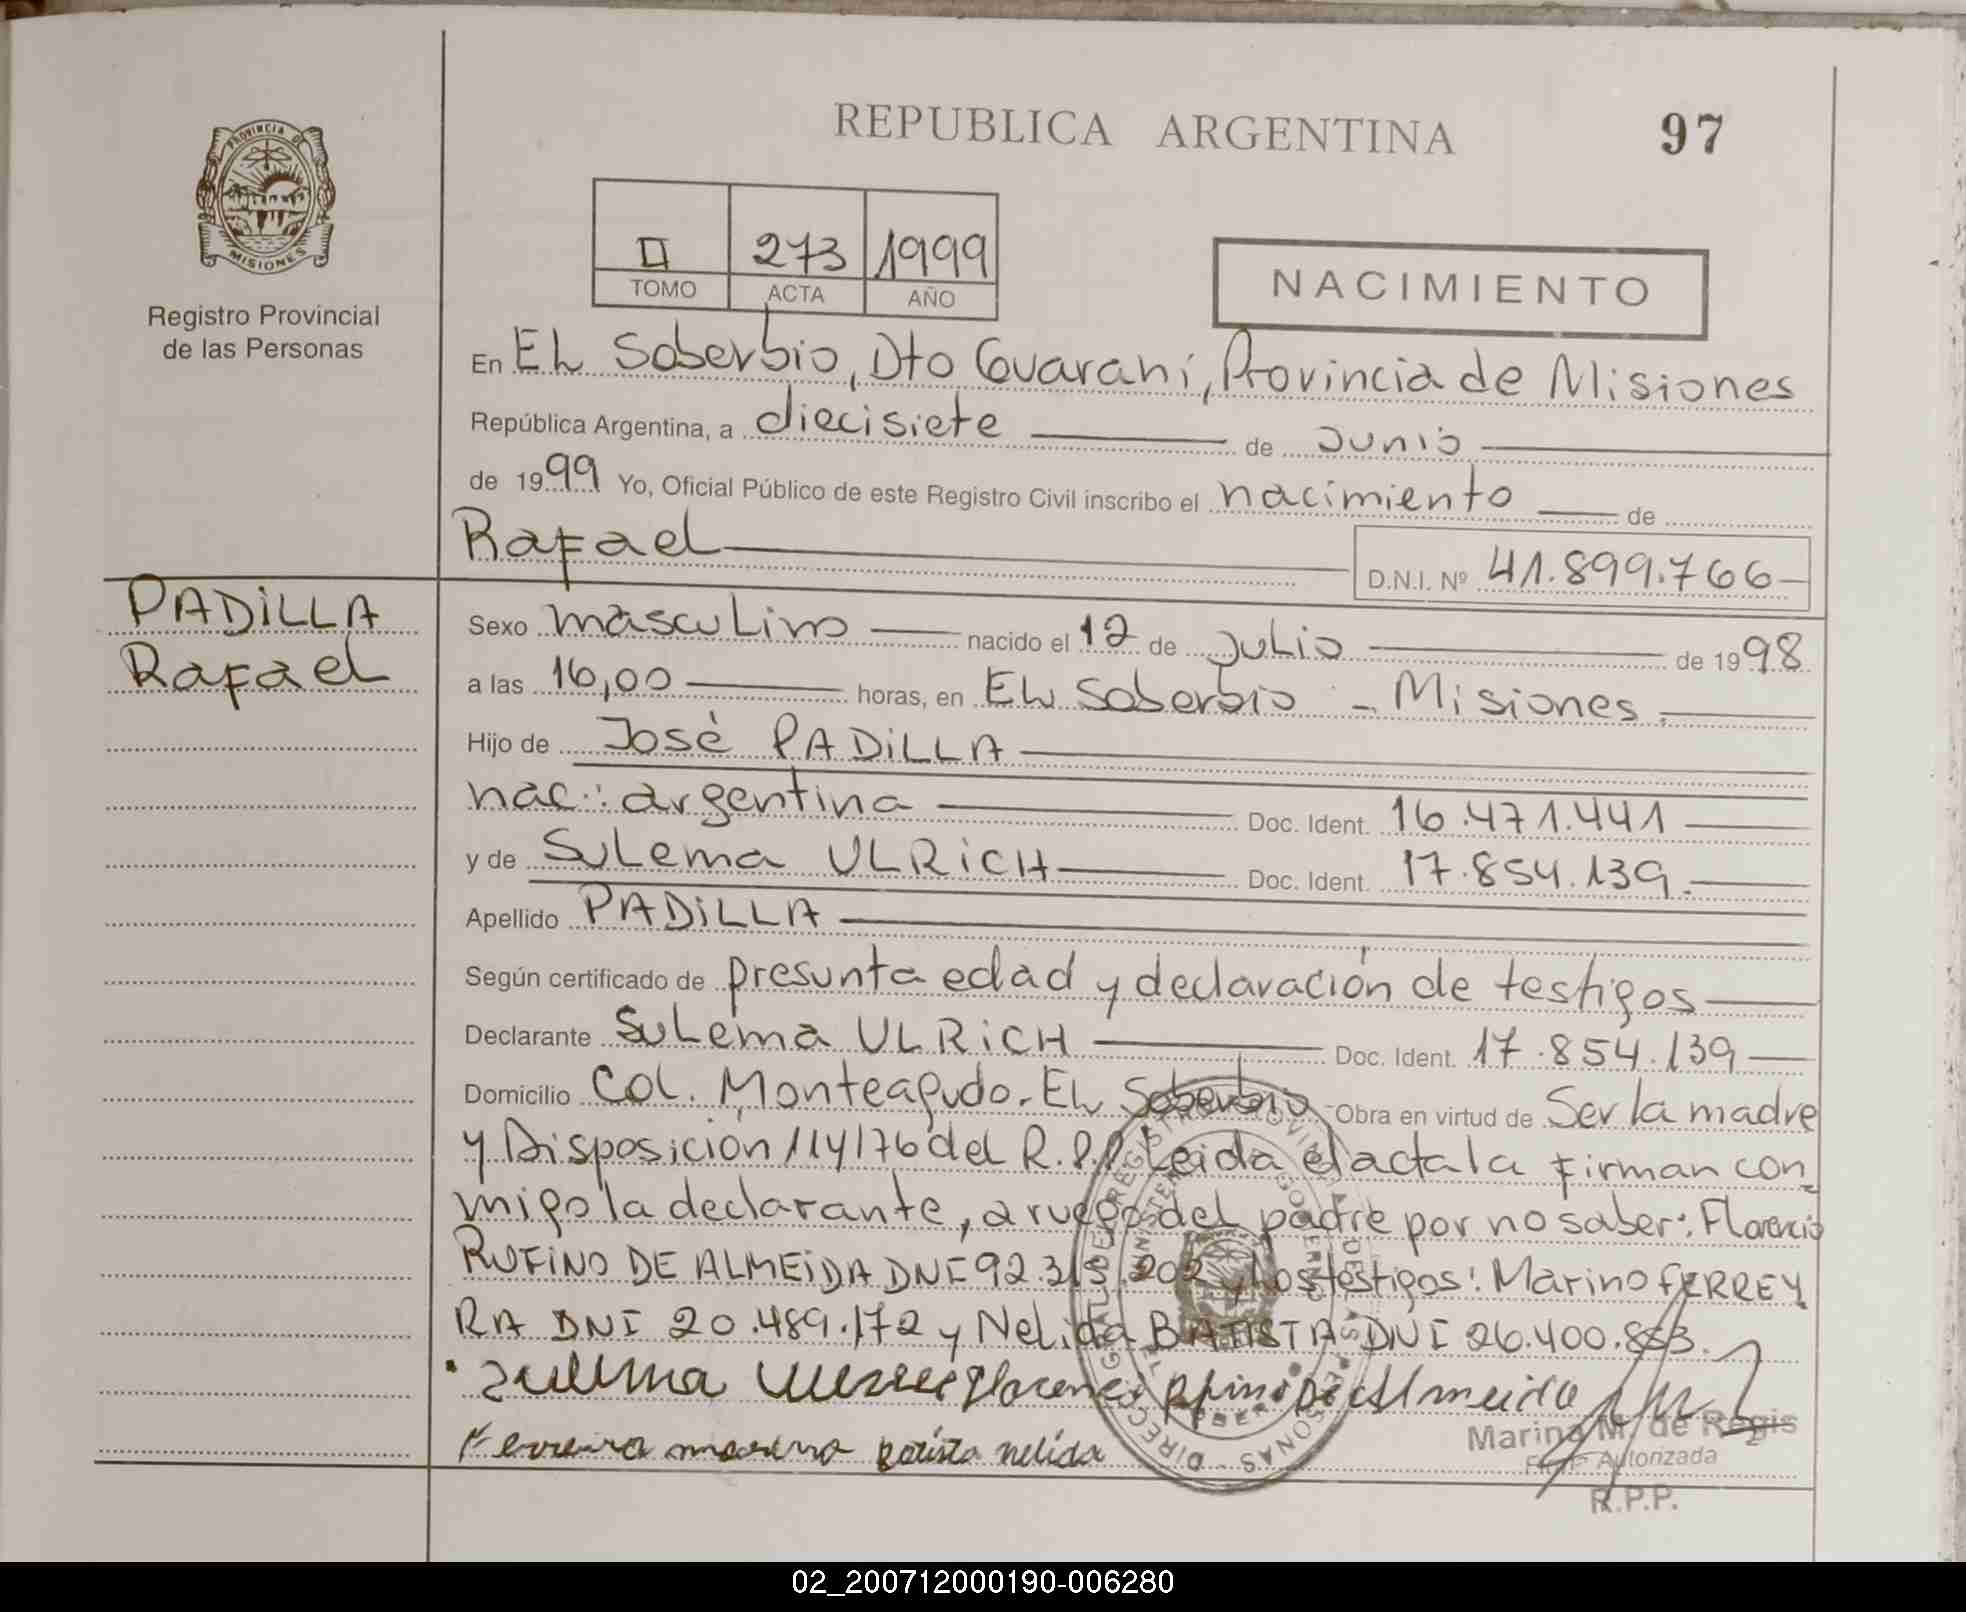 REPUBLICA ARGENTINA
97
PROVINCIA DE
MISIONES
Registro Provincial
de las Personas
II 273 1999
TOMO ACTA AÑO
NACIMIENTO
En EL Soberbio, Dto Guaraní, Provincia de Misiones
República Argentina, a diecisiete de Junio
de 1999 Yo, Oficial Público de este Registro Civil inscribo el nacimiento de
Rafael
D.N.I. Nº 41.899.766
PADiLLA
Rafael
Sexo mascuLino nacido el 12 de JuLio de 1998
a las 16,00 horas, en EL Soberbio - Misiones.
Hijo de José PADiLLA
nac: argentina Doc. Ident. 16.471.441
y de SuLema ULRiCH Doc. Ident. 17.854.139.
Apellido PADiLLA
Según certificado de presunta edad y declaración de testigos
Declarante SuLema ULRiCH Doc. Ident. 17.854.139
Domicilio COL. Monteagudo. EL Soberbio Obra en virtud de Ser la madre
y Disposición 114/76 del R.P.P. Leida el acta la firman con
migo la declarante, a ruego del padre por no saber: Florencio
RUFINO DE ALMEIDA DNI 92.313.202 y Los testigos: Marino FERREY
RA DNI 20.489.172 y NeLida BATISTA DNI 26.400.853.
Ferreira marino Batista nelida
Marina M. de Regis
Firma Autorizada
R.P.P.
02_200712000190-006280